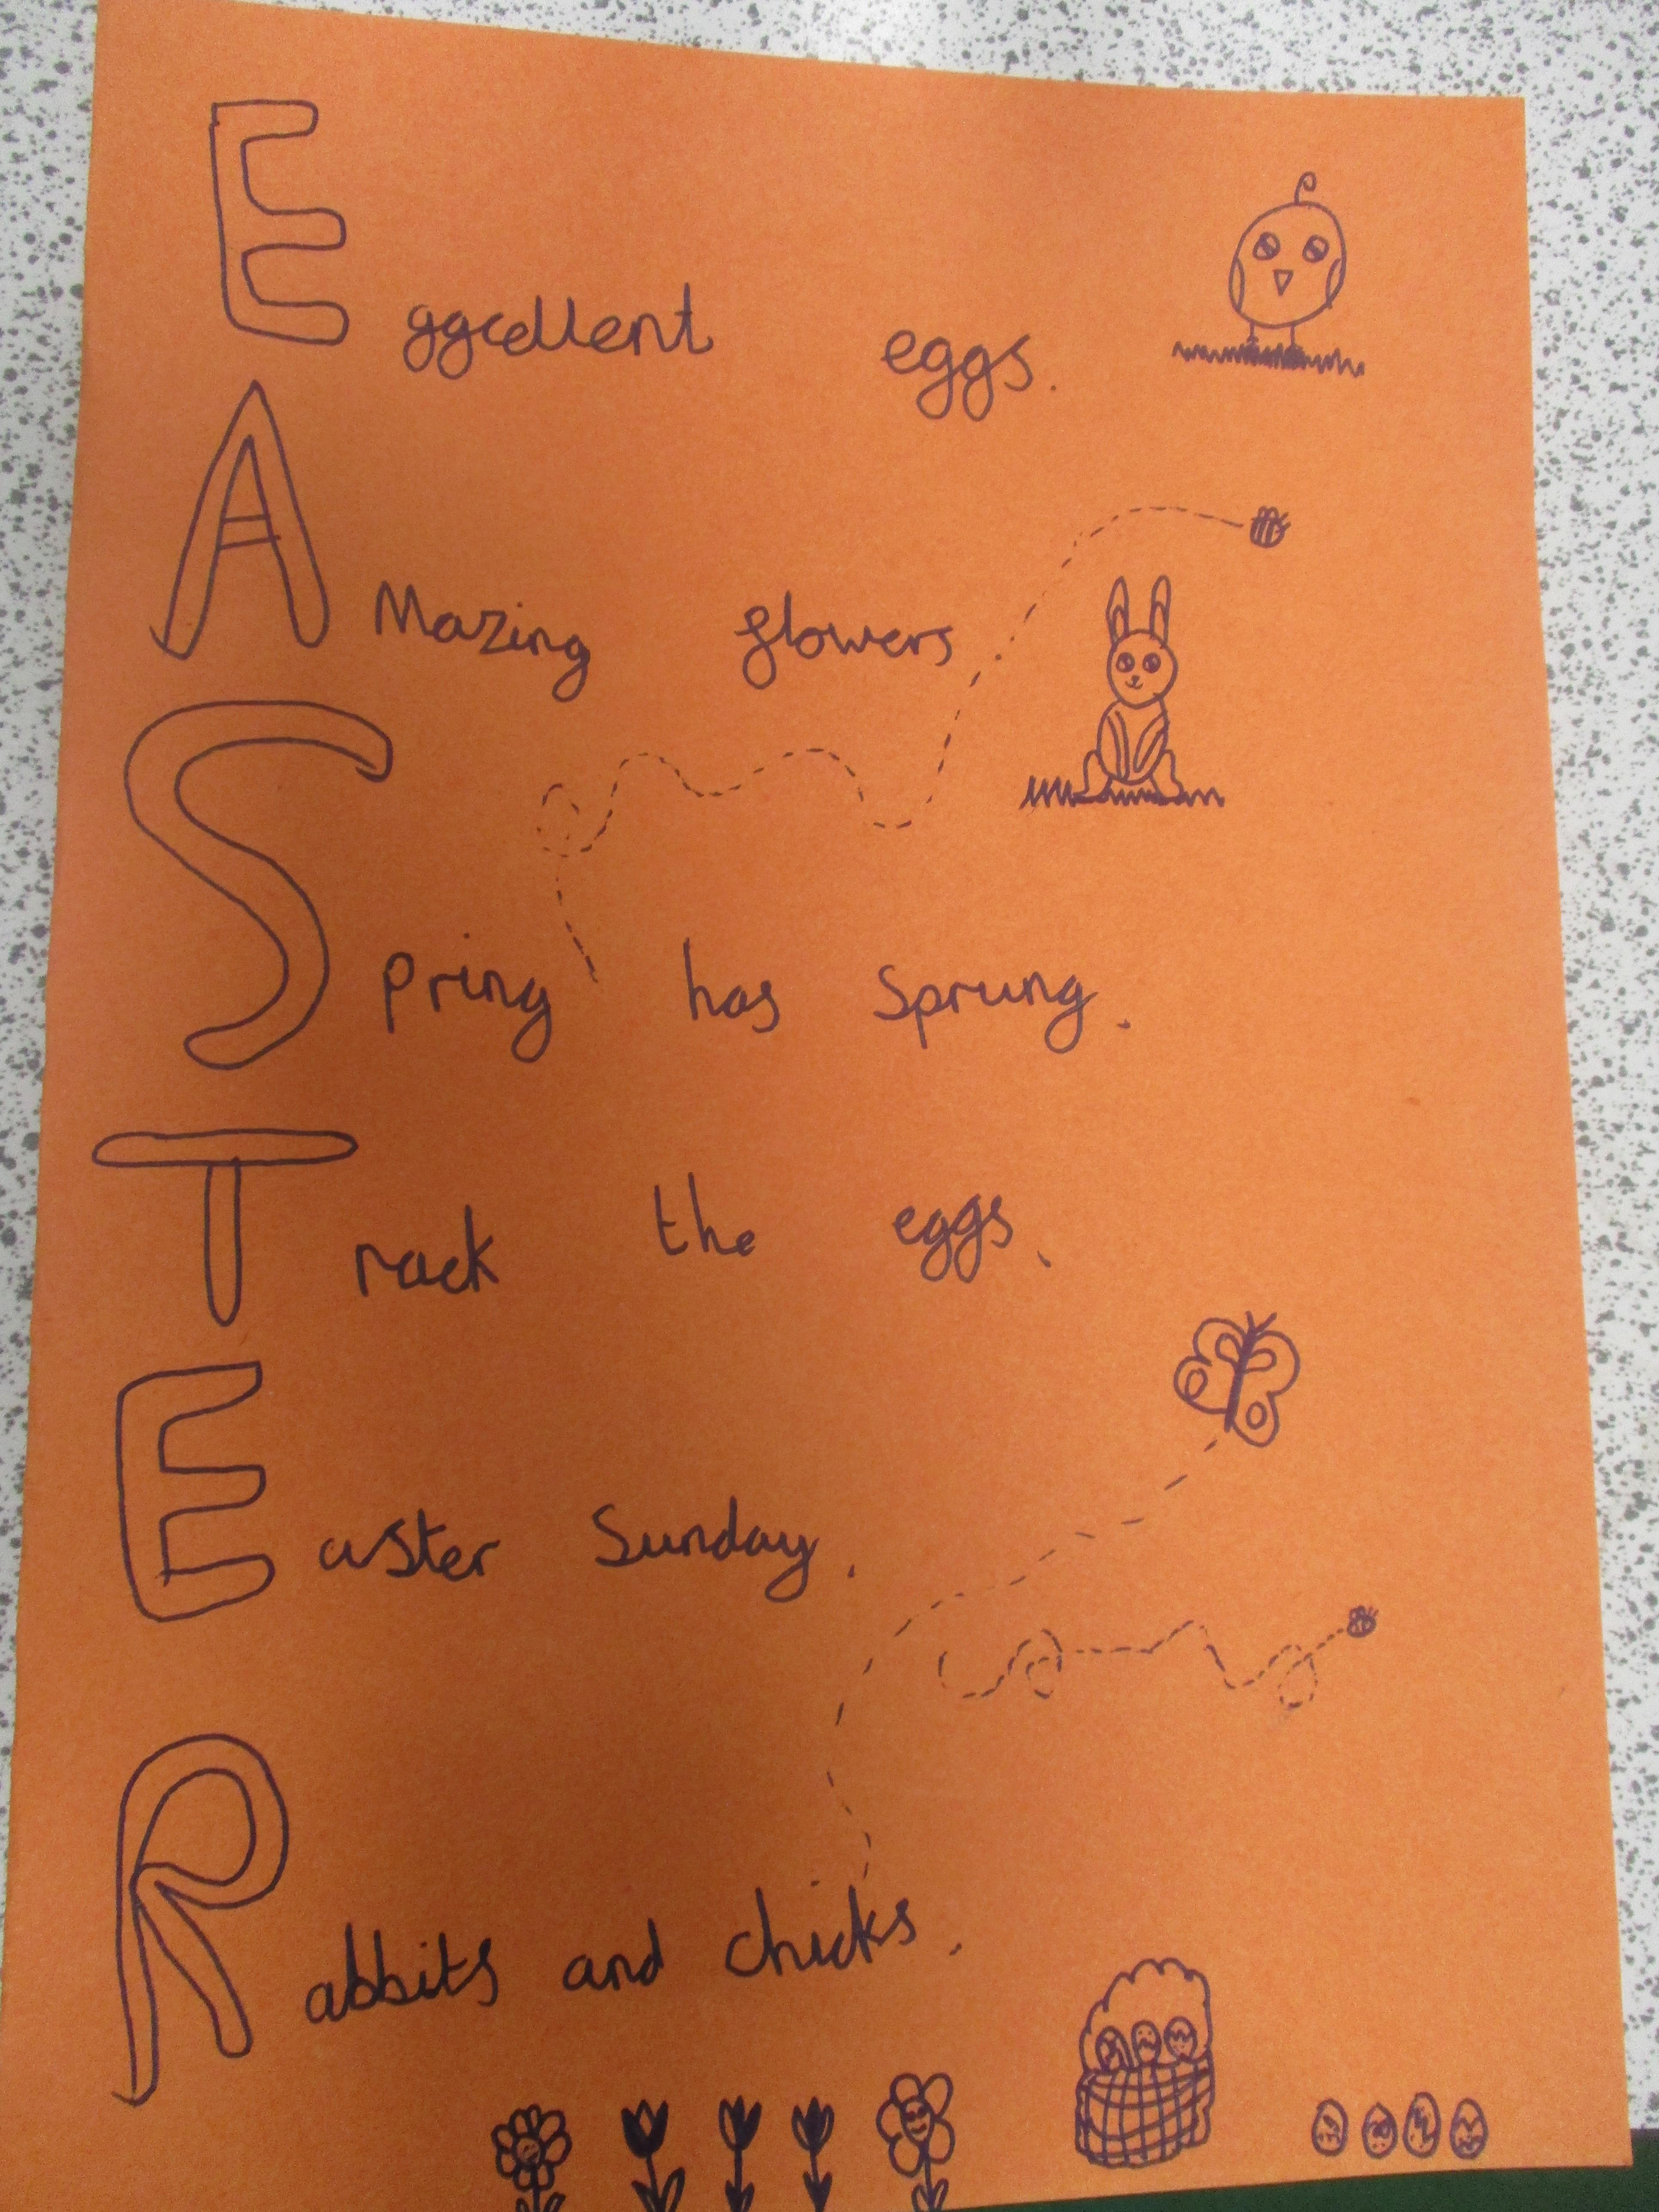 Eggcellent eggs.
AMazing flowers.
Spring has Sprung.
Track the eggs.
Easter Sunday.
Rabbits and chicks.